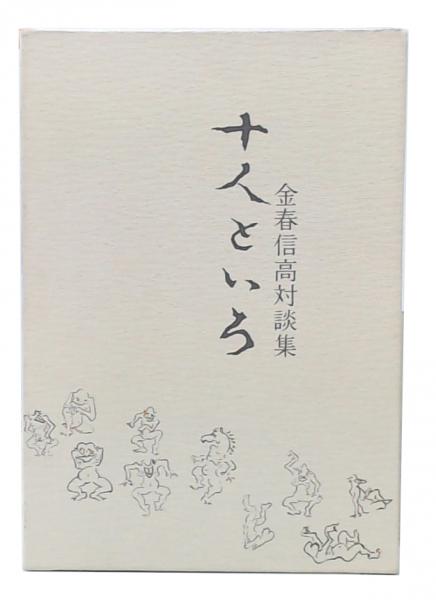 金春信高対談集
十人といろ